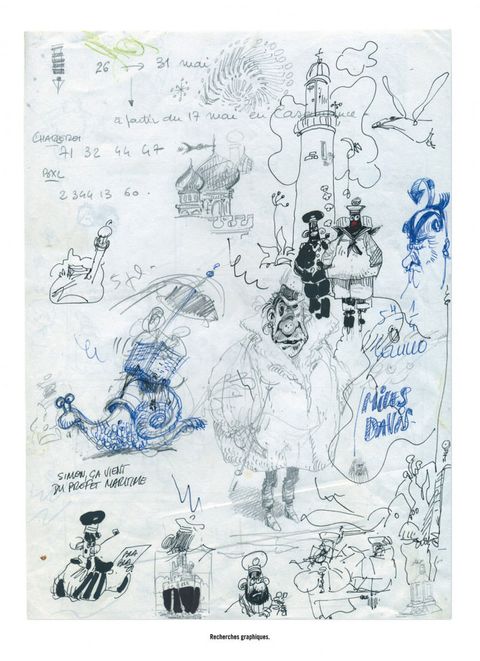 26 → 31 mai
à partir du 17 mai en
CHARLEROI
71 32 44 47
BXL
2 344 13 60.
MILES
DAVIS
SIMON, ÇA VIENT
DU PRÉFET MARITIME
Recherches graphiques.